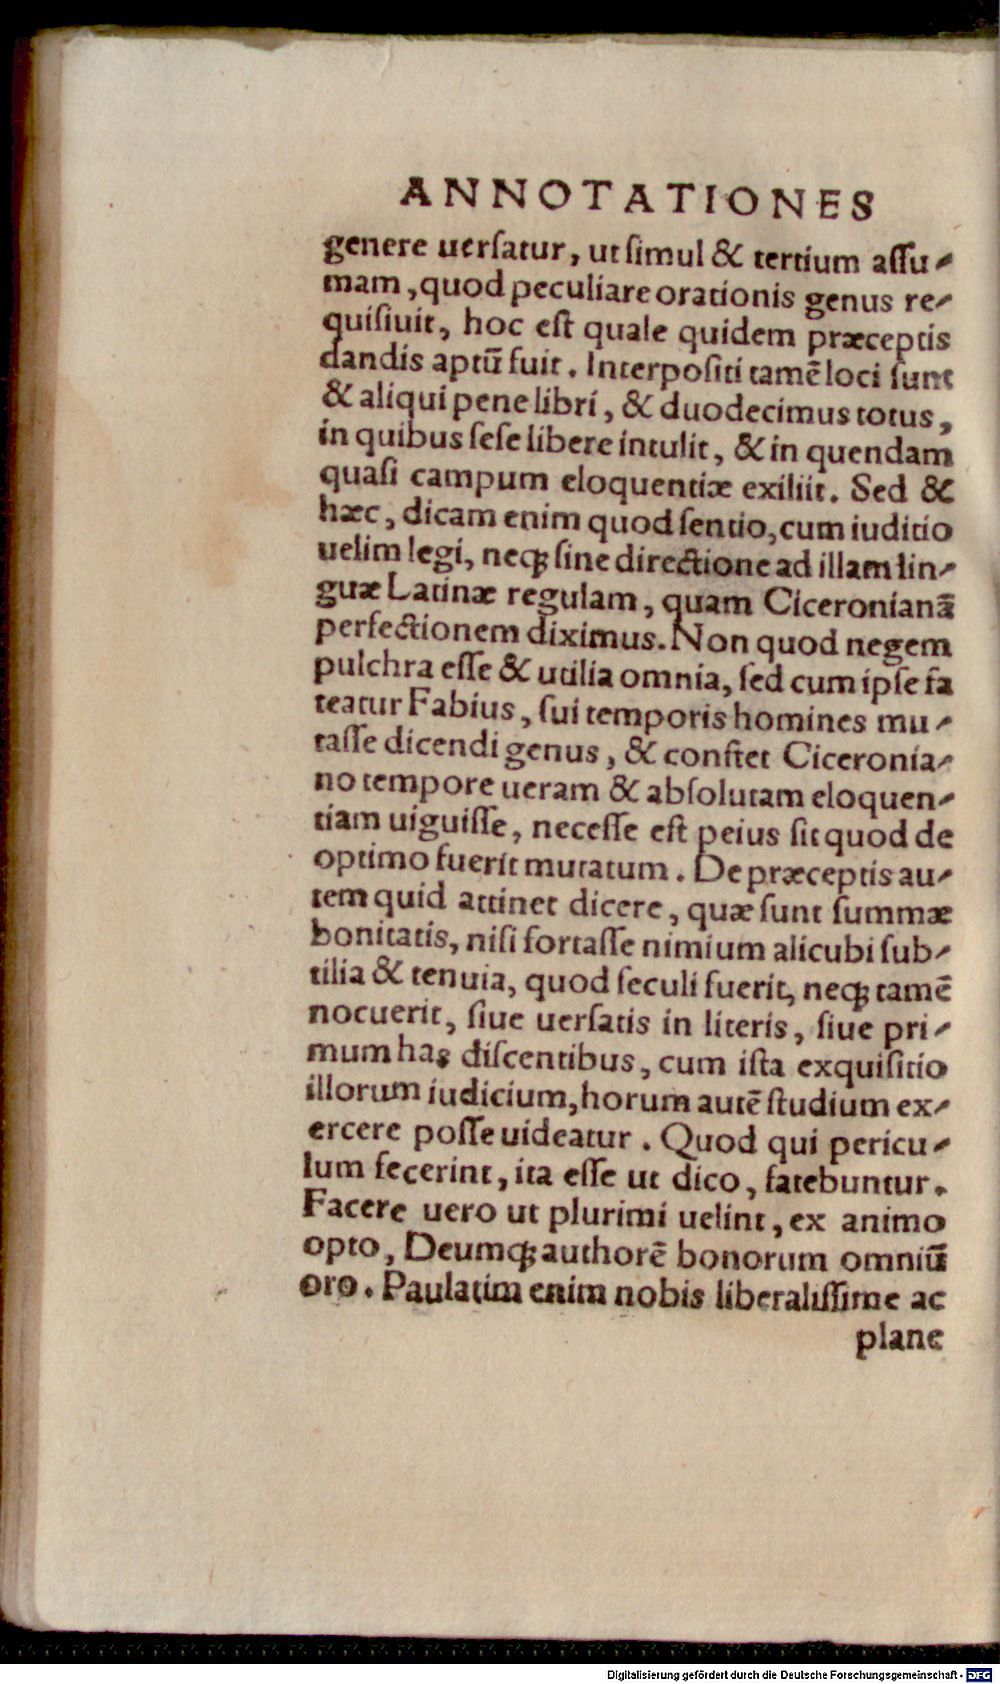 ANNOTATIONES
genere uerſatur, ut ſimul & tertium aſſu-
mam, quod peculiare orationis genus re-
quiſiuit, hoc eſt quale quidem præceptis
dandis aptū fuit. Interpoſiti tamē loci ſunt
& aliqui pene libri, & duodecimus totus,
in quibus ſeſe libere intulit, & in quendam
quaſi campum eloquentiæ exiliit. Sed &
hæc, dicam enim quod ſentio, cum iuditio
uelim legi, neqꝫ ſine directione ad illam lin-
guæ Latinæ regulam, quam Ciceronianā
perfectionem diximus. Non quod negem
pulchra eſſe & utilia omnia, ſed cum ipſe fa
teatur Fabius, ſui temporis homines mu-
taſſe dicendi genus, & conſtet Ciceronia-
no tempore ueram & abſolutam eloquen-
tiam uiguiſſe, neceſſe eſt peius ſit quod de
optimo fuerit mutatum. De præceptis au-
tem quid attinet dicere, quæ ſunt ſummæ
bonitatis, niſi fortaſſe nimium alicubi ſub-
tilia & tenuia, quod ſeculi fuerit, neqꝫ tamē
nocuerit, ſiue uerſatis in literis, ſiue pri-
mum has diſcentibus, cum iſta exquiſitio
illorum iudicium, horum autē ſtudium ex-
ercere poſſe uideatur. Quod qui pericu-
lum fecerint, ita eſſe ut dico, fatebuntur.
Facere uero ut plurimi uelint, ex animo
opto, Deumqꝫ authorē bonorum omniū
oro. Paulatim enim nobis liberaliſſime ac
plane
Digitalisierung gefördert durch die Deutsche Forschungsgemeinschaft - DFG